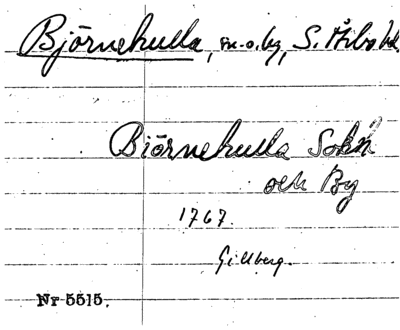 Björnehulla, sn-o.by, S. Åsbo hd.
Biörnehulla Sokn
och By
1767.
Gillberg.
Nr 5515.